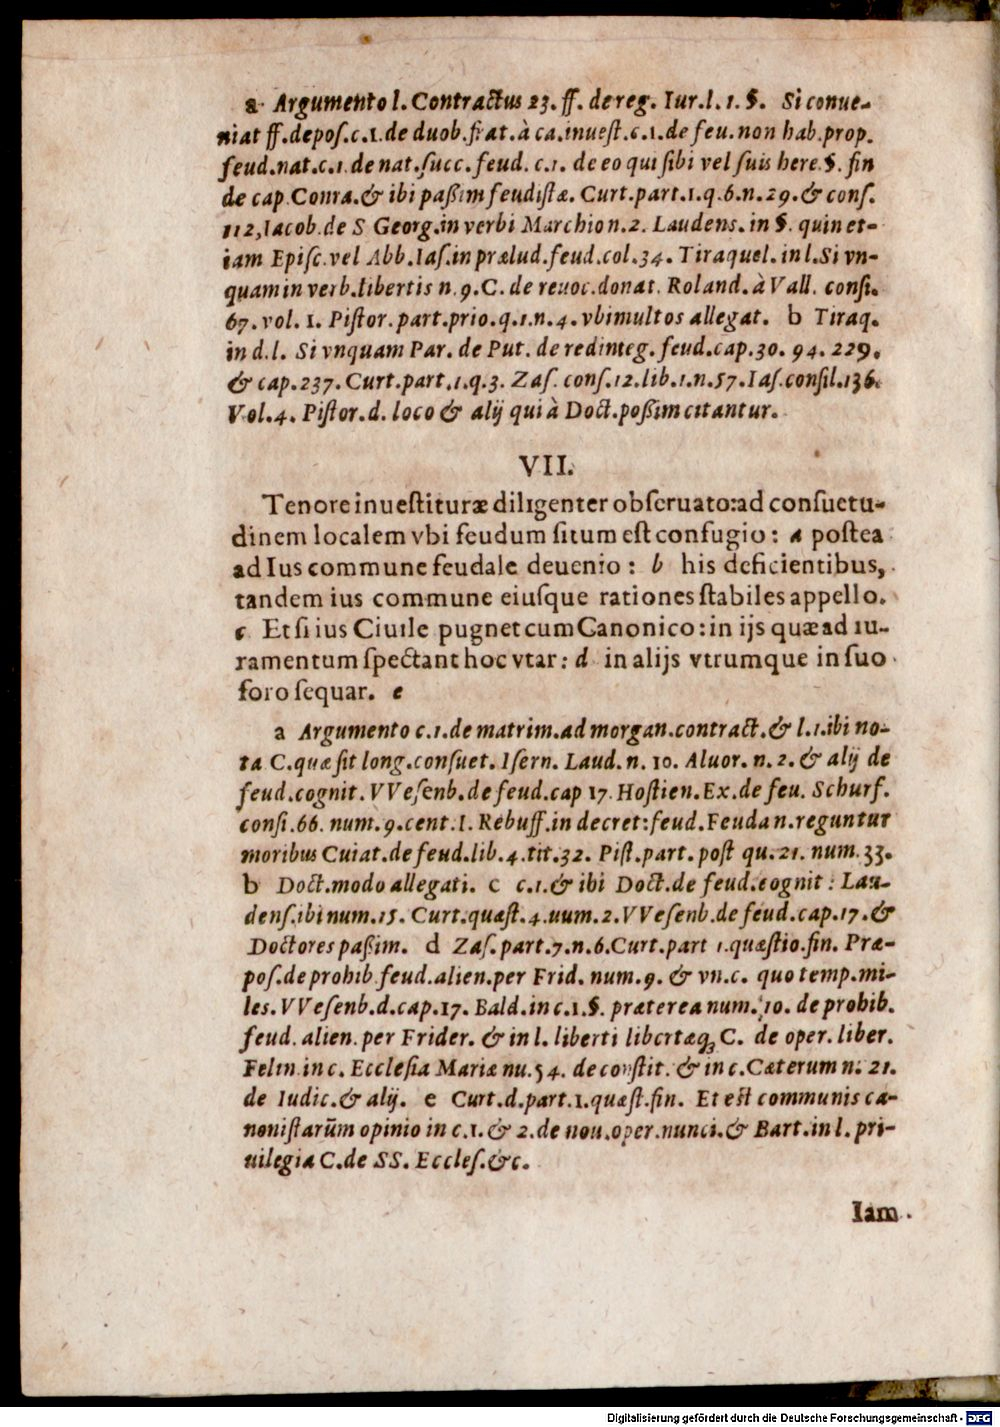 a Argumento l. Contractus 23. ff. de reg. Iur. l. 1. §. Si conue-
niat ff. depos. c. 1. de duob. frat. à ca. inuest. c. 1. de feu. non hab. prop.
feud. nat. c. 1. de nat. succ. feud. c. 1. de eo qui sibi vel suis here. §. fin
de cap. Conra. & ibi paßim feudistæ. Curt. part. 1. q. 6. n. 29. & cons.
112, Iacob. de S Georg. in verbi Marchion. 2. Laudens. in §. quin et-
iam Episc. vel Abb. Ias. in prælud. feud. col. 34. Tiraquel. in l. Si vn-
quam in verb. libertis n. 9. C. de reuoc. donat. Roland. à Vall. consi.
67. vol. 1. Pistor. part. prio. q. 1. n. 4. vbi multos allegat. b Tiraq.
in d. l. Si vnquam Par. de Put. de redinteg. feud. cap. 30. 94. 229.
& cap. 237. Curt. part. 1. q. 3. Zas. cons. 12. lib. 1. n. 57. Ias. consil. 136.
Vol. 4. Pistor. d. loco & alij qui à Doct. poßim citantur.
VII.
Tenore inuestituræ diligenter obseruato: ad consuetu-
dinem localem vbi feudum situm est confugio: a postea
ad Ius commune feudale deuenio: b his deficientibus,
tandem ius commune eiusque rationes stabiles appello.
c Et si ius Ciuile pugnet cum Canonico: in ijs quæ ad iu-
ramentum spectant hoc vtar: d in alijs vtrumque in suo
foro sequar. e
a Argumento c. 1. de matrim. ad morgan. contract. & l. 1. ibi no-
ta C. quæ sit long. consuet. Isern. Laud. n. 10. Aluor. n. 2. & alij de
feud. cognit. VVesenb. de feud. cap 17. Hostien. Ex. de feu. Schurf.
consi. 66. num. 9. cent. 1. Rebuff. in decret: feud. Feuda n. reguntur
moribus Cuiat. de feud. lib. 4. tit. 32. Pist. part. post qu. 21. num. 33.
b Doct. modo allegati. c c. 1. & ibi Doct. de feud. cognit: Lau-
dens. ibi num. 15. Curt. quæst. 4. uum. 2. VVesenb. de feud. cap. 17. &
Doctores paßim. d Zas. part. 7. n. 6. Curt. part 1. quæstio. fin. Præ-
pos. de prohib. feud. alien. per Frid. num. 9. & vn. c. quo temp. mi-
les. VVesenb. d. cap. 17. Bald. in c. 1. §. præterea num. 10. de prohib.
feud. alien. per Frider. & in l. liberti libertæq; C. de oper. liber.
Felin. in c. Ecclesia Mariæ nu. 54. de constit. & in c. Cæterum n. 21.
de Iudic. & alij. e Curt. d. part. 1. quæst. fin. Et est communis ca-
nonistarũm opinio in c. 1. & 2. de nou. oper. nunci. & Bart. in l. pri-
uilegia C. de SS. Eccles. &c.
Iam
Digitalisierung gefördert durch die Deutsche Forschungsgemeinschaft - DFG